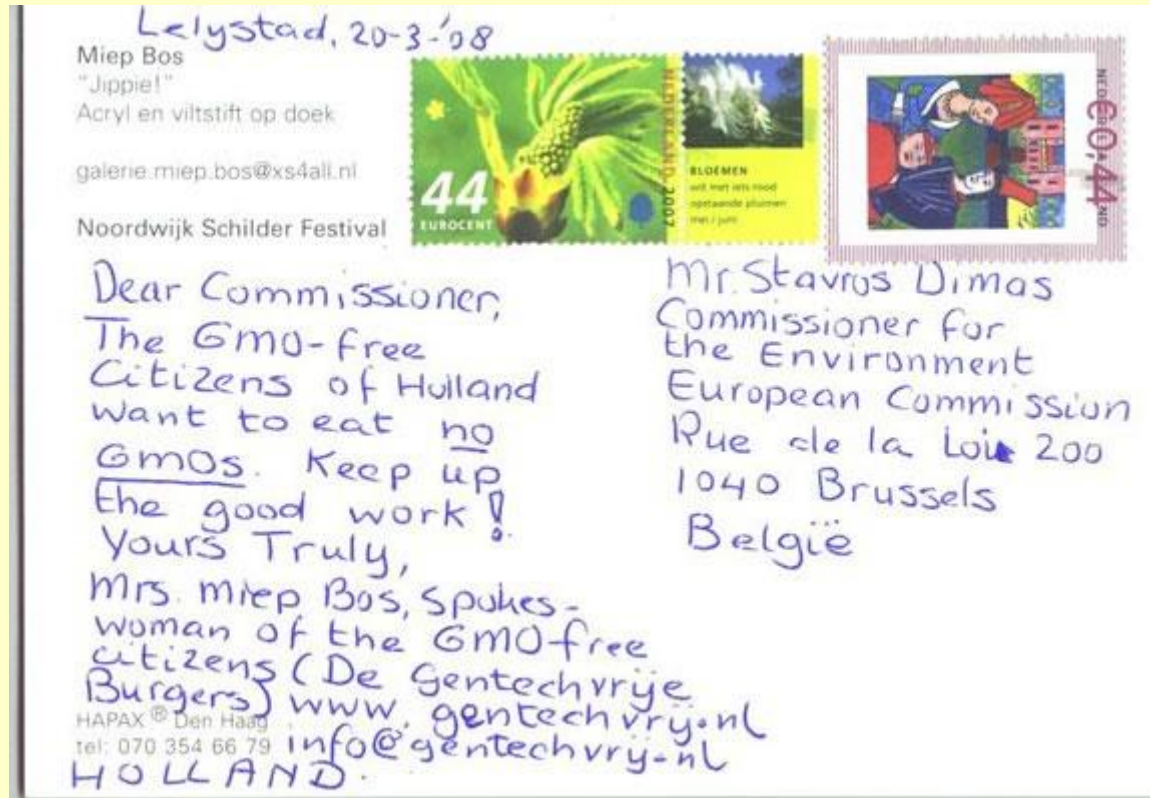 Lelystad, 20-3-'08
Miep Bos
"Jippie!"
Acryl en viltstift op doek
galerie.miep.bos@xs4all.nl
Noordwijk Schilder Festival
44
EUROCENT
NEDERLAND 2007
BLOEMEN
wit met iets rood
opstaande pluimen
mei / juni
€0,44
NEDERLAND
Dear Commissioner,
The GMO-free
Citizens of Holland
want to eat no
GMOs. Keep up
the good work!
Yours Truly,
Mrs. Miep Bos, Spokes-
woman of the GMO-free
citizens (De Gentechvrije
Burgers) www.gentechvrij.nl
info@gentechvrij.nl
HOLLAND.
HAPAX ® Den Haag
tel: 070 354 66 79
Mr. Stavros Dimas
Commissioner for
the Environment
European Commission
Rue de la Loi 200
1040 Brussels
België